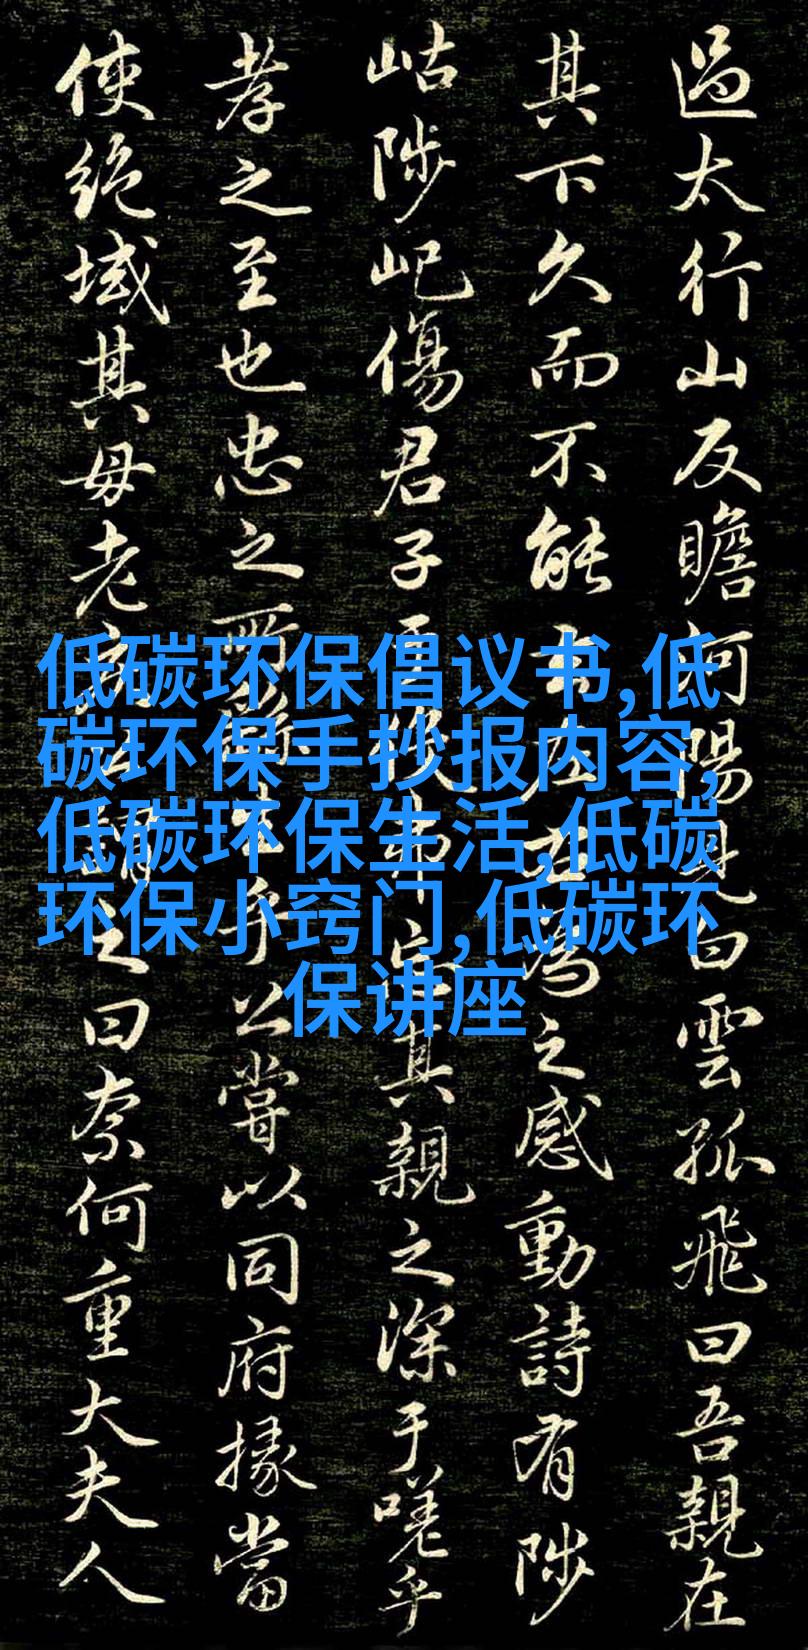 過太行山反瞻河陽見白雲孤飛曰吾親在
其下久而不能去左右為之感動詩有陟
岵陟屺傷君子于役弗忘其親之深于嗟乎
孝之至也忠之所生乎公嘗以同府掾當
使絕域其母老疾公謂之曰奈何重大夫人
低碳环保倡议书,低
碳环保手抄报内容,
低碳环保生活,低碳
环保小窍门,低碳环
保讲座